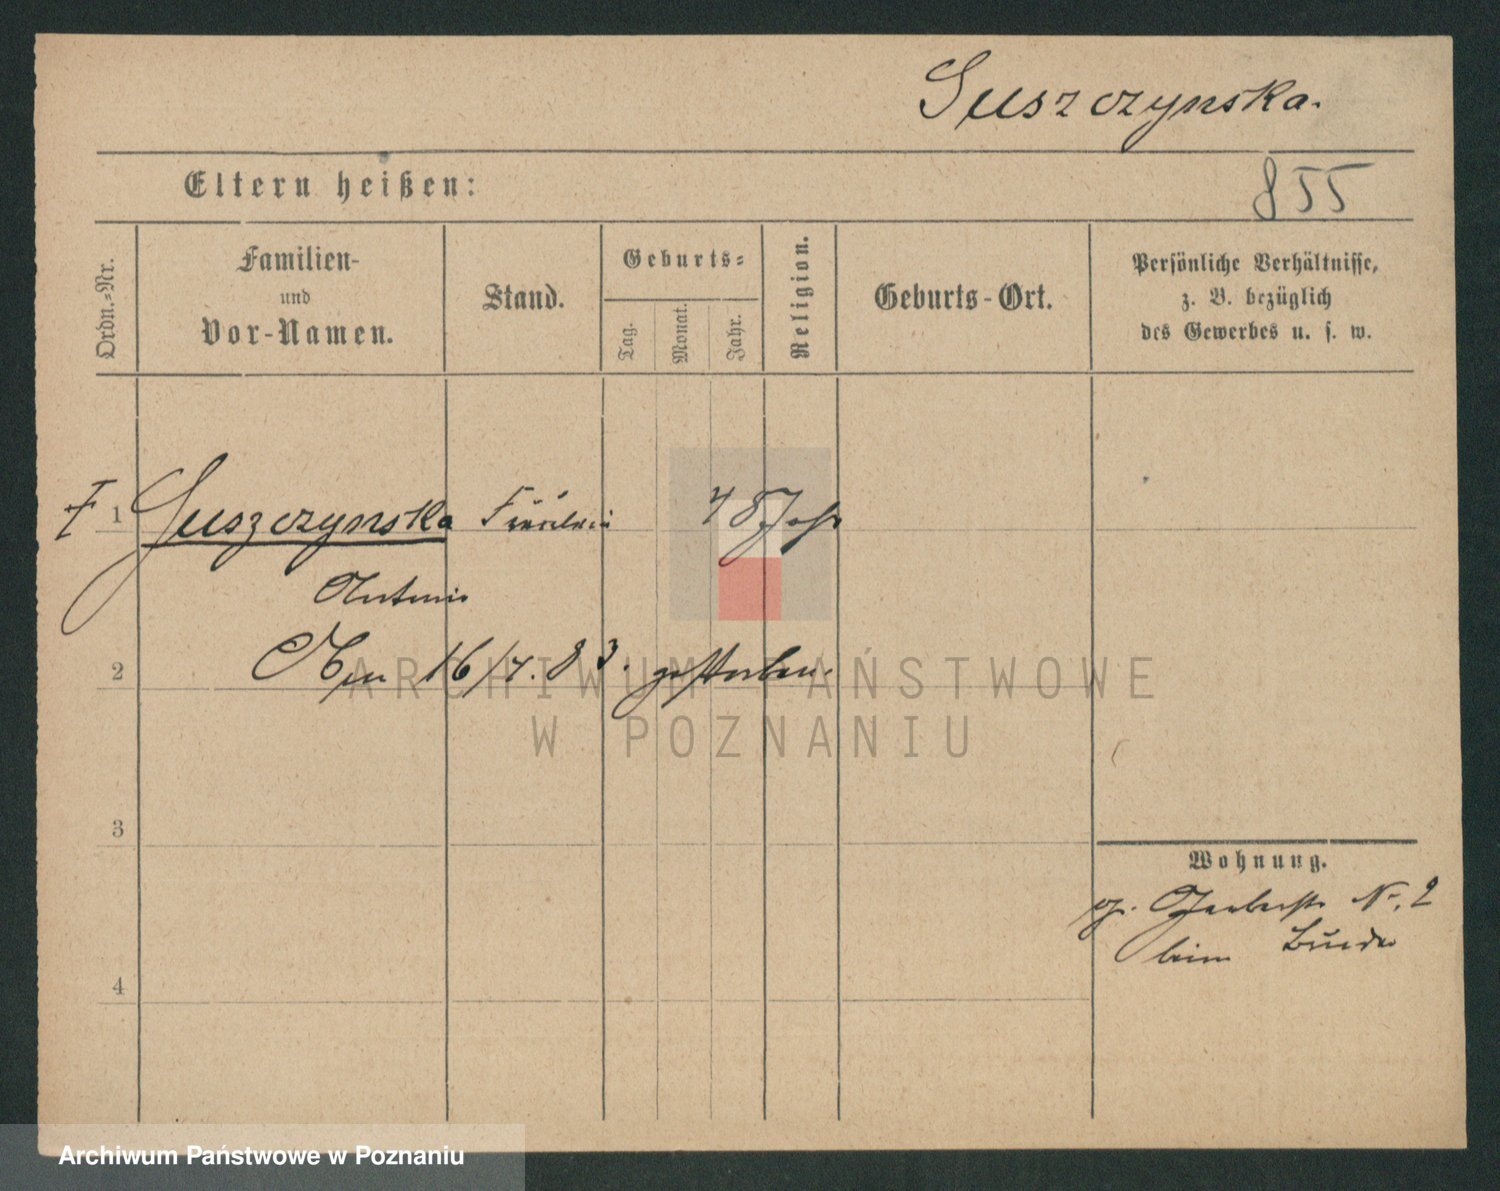 Suszczynska.
Eltern heißen:
855
Ordn.-Nr.
Familien-
und
Vor-Namen.
Stand.
Geburts-
Tag.
Monat.
Jahr.
Religion.
Geburts-Ort.
Persönliche Verhältnisse,
z. B. bezüglich
des Gewerbes u. s. w.
1 Suszczynska Fräulein 48 Jahr
Antonie
2 Am 16/4. 83. gestorben.
ARCHIWUM PAŃSTWOWE
W POZNANIU
3
Wohnung.
Gerberstr No. 2
beim Bruder
4
Archiwum Państwowe w Poznaniu